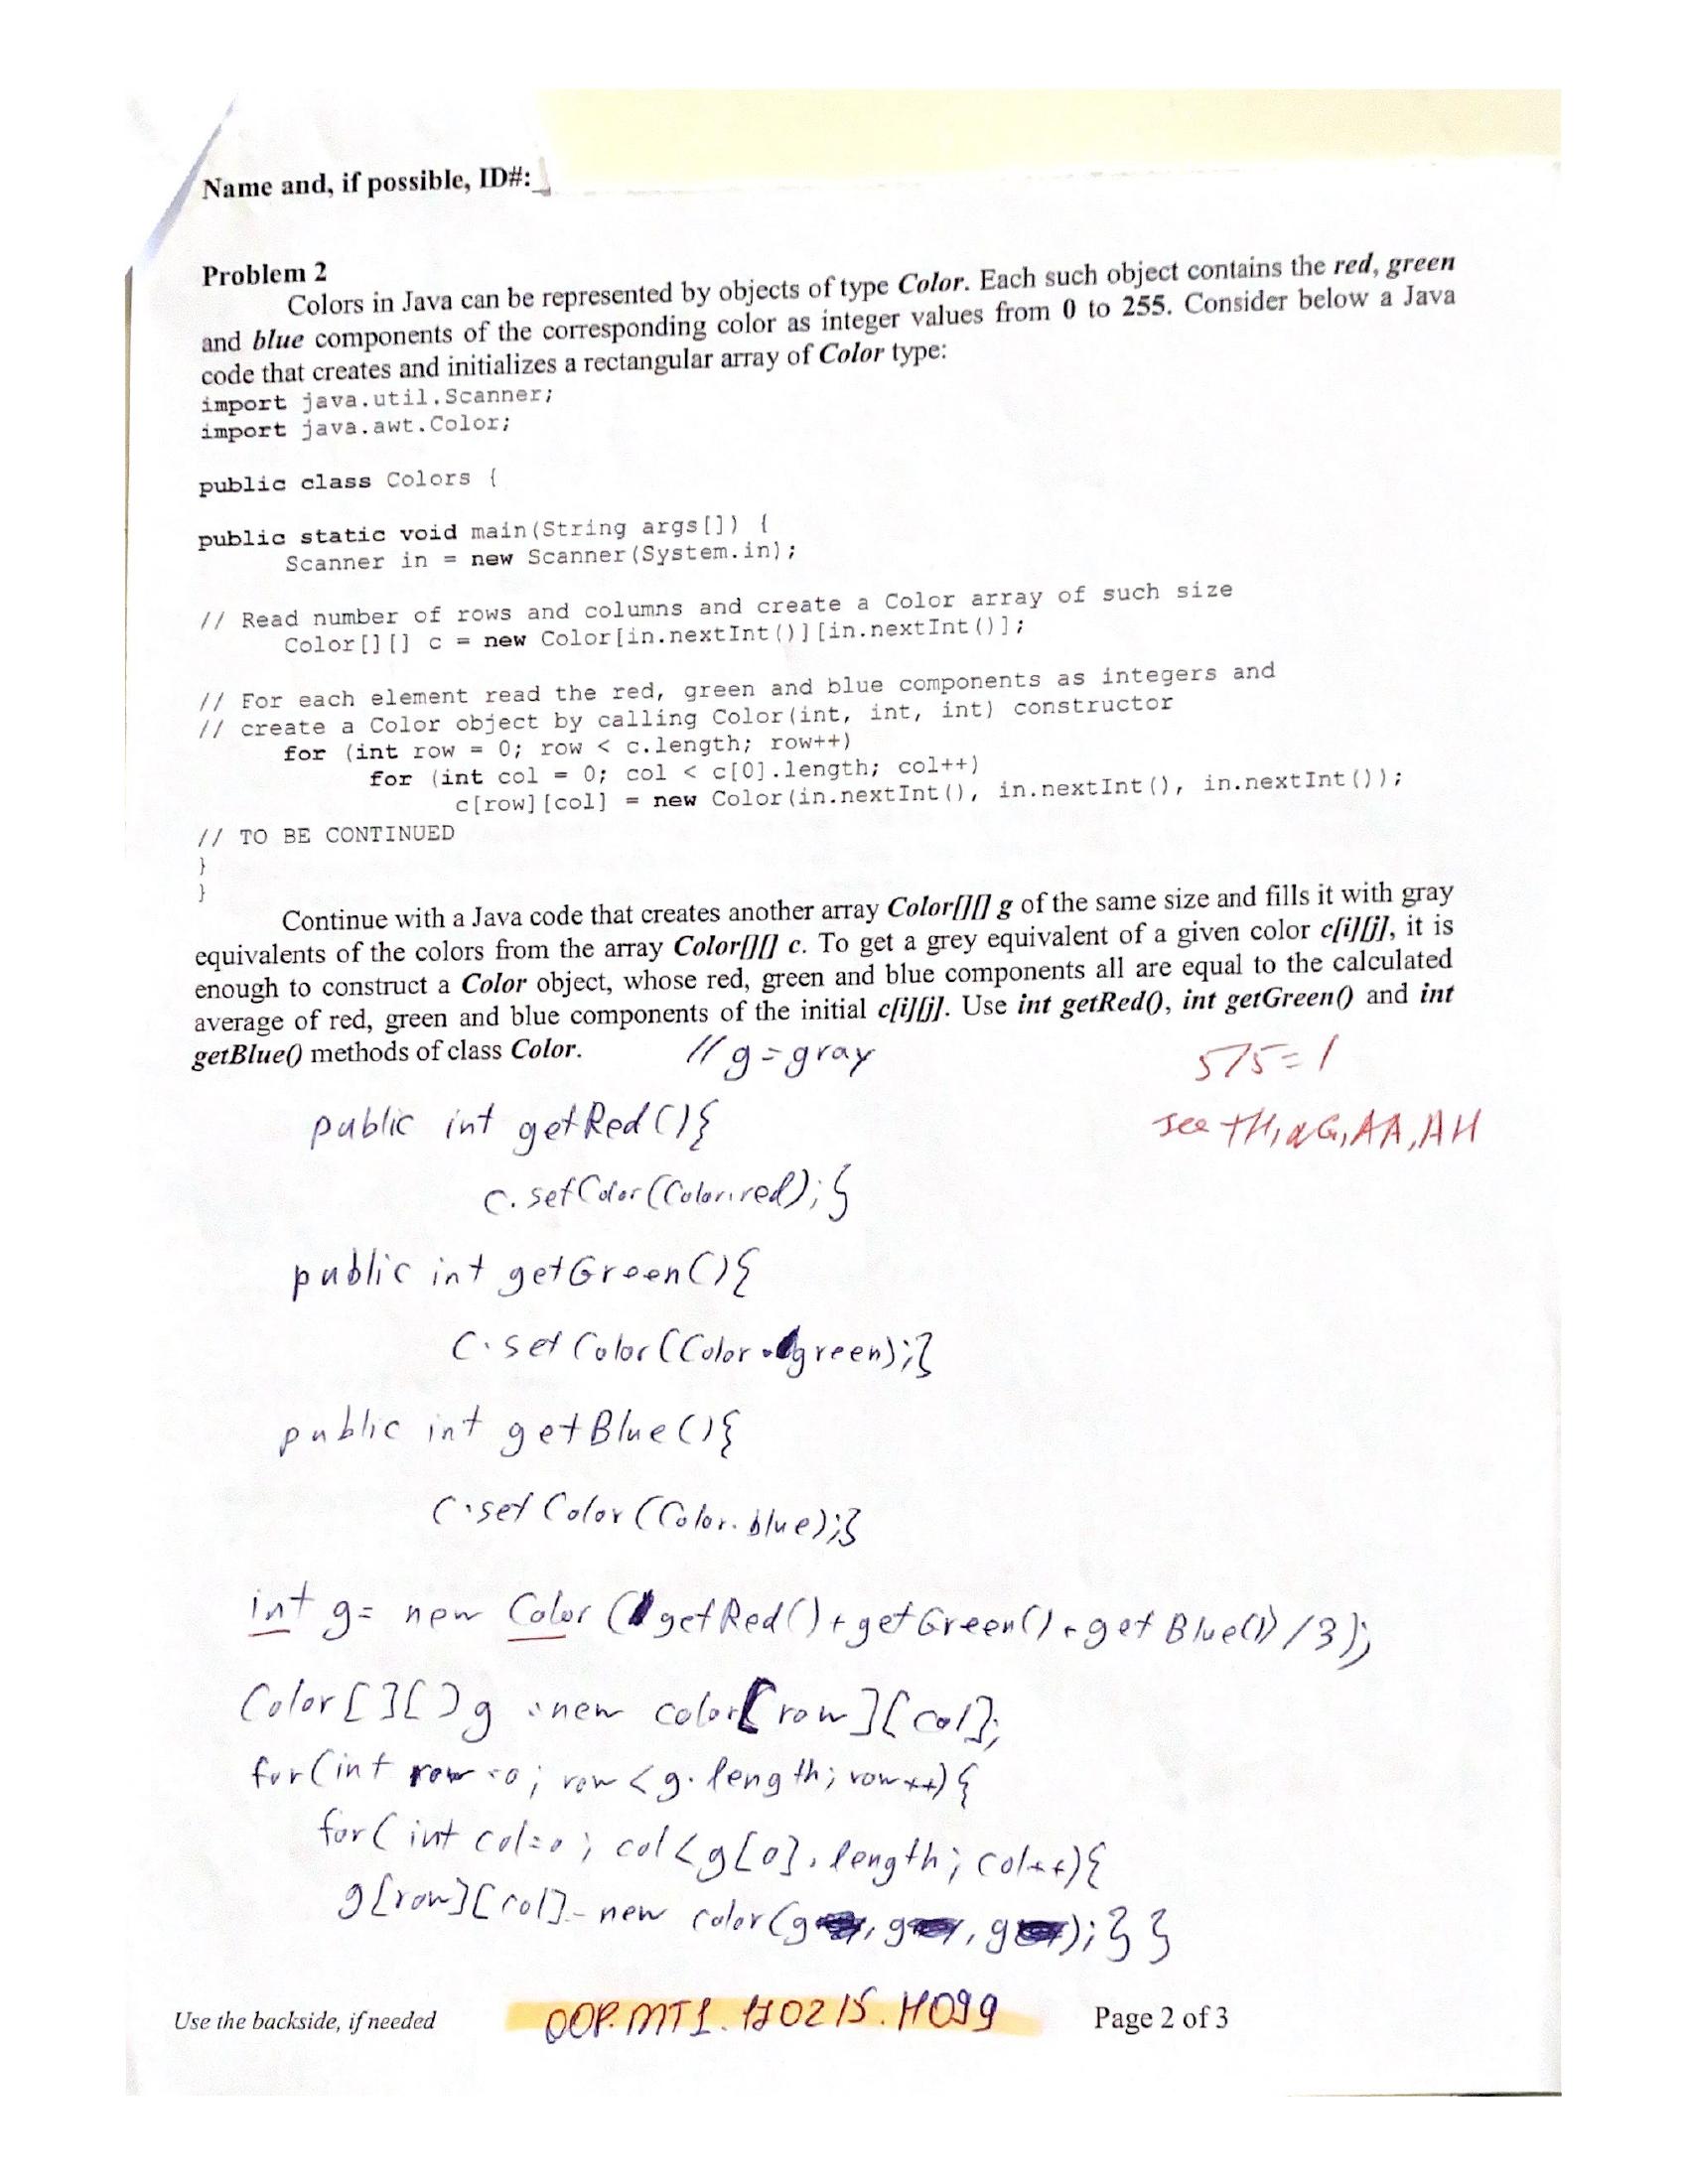 Name and, if possible, ID#:
Problem 2
Colors in Java can be represented by objects of type Color. Each such object contains the red, green
and blue components of the corresponding color as integer values from 0 to 255. Consider below a Java
code that creates and initializes a rectangular array of Color type:
import java.util.Scanner;
import java.awt.Color;
public class Colors {
public static void main(String args[]) {
Scanner in = new Scanner(System.in);
// Read number of rows and columns and create a Color array of such size
Color[][] c = new Color[in.nextInt()][in.nextInt()];
// For each element read the red, green and blue components as integers and
// create a Color object by calling Color(int, int, int) constructor
for (int row = 0; row < c.length; row++)
for (int col = 0; col < c[0].length; col++)
c[row][col] = new Color(in.nextInt(), in.nextInt(), in.nextInt());
// TO BE CONTINUED
}
}
Continue with a Java code that creates another array Color[][] g of the same size and fills it with gray
equivalents of the colors from the array Color[][] c. To get a grey equivalent of a given color c[i][j], it is
enough to construct a Color object, whose red, green and blue components all are equal to the calculated
average of red, green and blue components of the initial c[i][j]. Use int getRed(), int getGreen() and int
getBlue() methods of class Color.
// g = gray
575=1
see +H, G, AA, AH
public int getRed(){
c.setColor(Color.red);}
public int getGreen(){
c.setColor(Color.green);}
public int getBlue(){
c.setColor(Color.blue);}
int g= new Color (getRed()+getGreen()+getBlue())/3);
Color[][]g =new color[row][col];
for(int row=0; row<g.length; row++){
for(int col=0; col<g[0].length; col++){
g[row][col]=new color(g, g, g);}}
Use the backside, if needed
OOP.MT1.170215.H099
Page 2 of 3